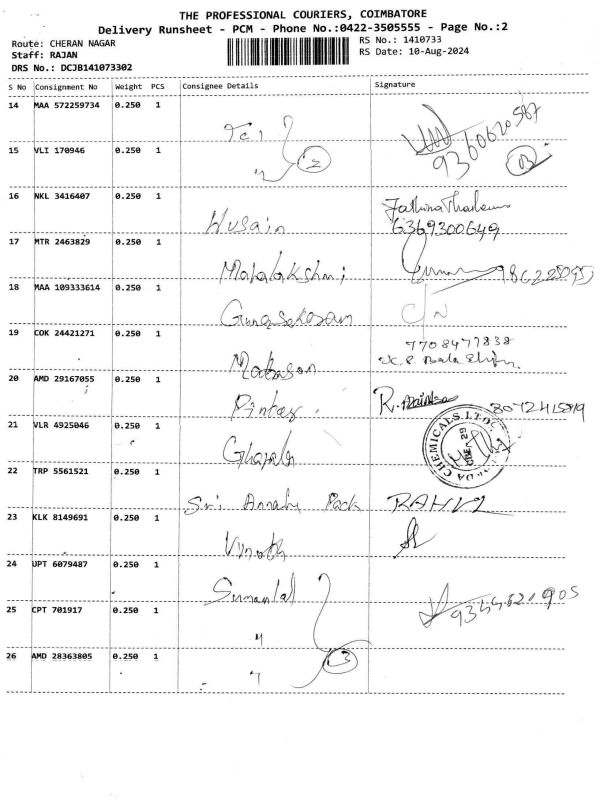 THE PROFESSIONAL COURIERS, COIMBATORE
Delivery Runsheet - PCM - Phone No.:0422-3505555 - Page No.:2
Route: CHERAN NAGAR
RS No.: 1410733
Staff: RAJAN
RS Date: 10-Aug-2024
DRS No.: DCJB141073302
S No Consignment No Weight PCS Consignee Details Signature
14 MAA 572259734 0.250 1
15 VLI 170946 0.250 1
16 NKL 3416407 0.250 1 Husain 6369300649
17 MTR 2463829 0.250 1 Mahalakshmi
18 MAA 109333614 0.250 1 Gunasekaran C/N
19 COK 24421271 0.250 1 7708477838
20 AMD 29167055 0.250 1
21 VLR 4925046 0.250 1
CHEMICALS LTD
22 TRP 5561521 0.250 1 Sri Pack RAHUL
23 KLK 8149691 0.250 1 Vinoth
24 UPT 6079487 0.250 1
25 CPT 701917 0.250 1 "
26 AMD 28363805 0.250 1 " 3